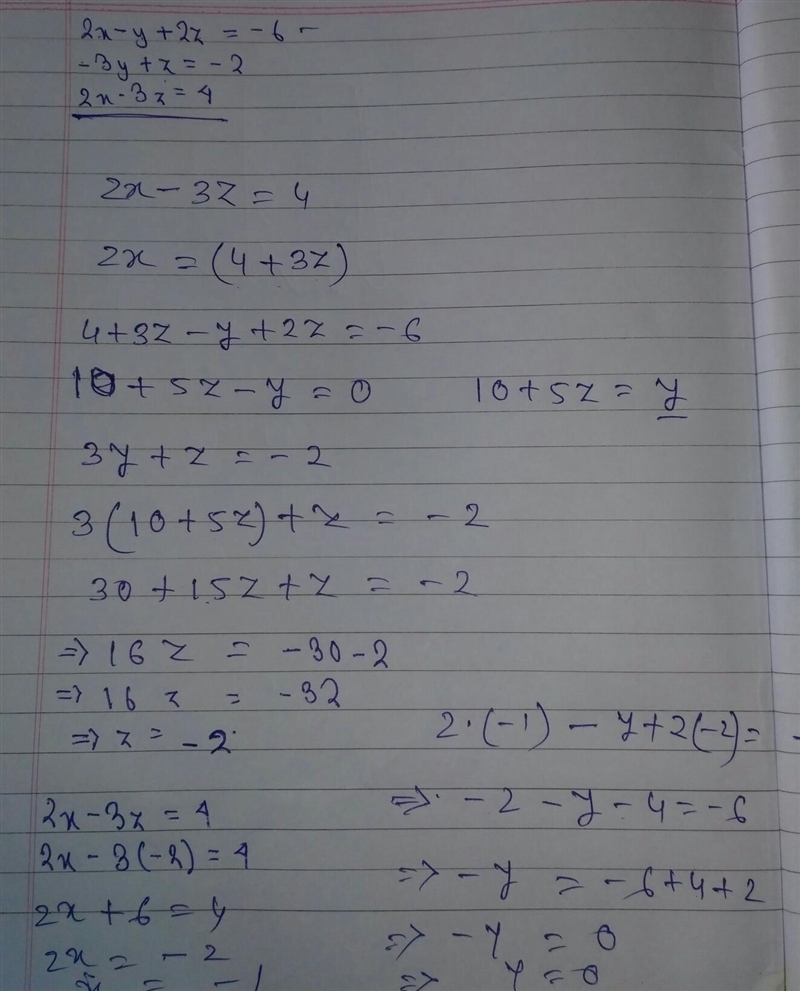 2x-y+2z = -6 -
-3y+z = -2
2x-3z = 4
2x - 3z = 4
2x = (4+3z)
4+3z-y+2z = -6
10+5z-y = 0
10+5z = y
3y+z = -2
3(10+5z)+z = -2
30+15z+z = -2
⇒ 16z = -30-2
⇒ 16z = -32
⇒ z = -2
2x-3z = 4
2x-3(-2) = 4
2x+6 = 4
2x = -2
x = -1
2·(-1) - y+2(-2) = -
⇒ -2-y-4 = -6
⇒ -y = -6+4+2
⇒ -y = 0
⇒ y = 0